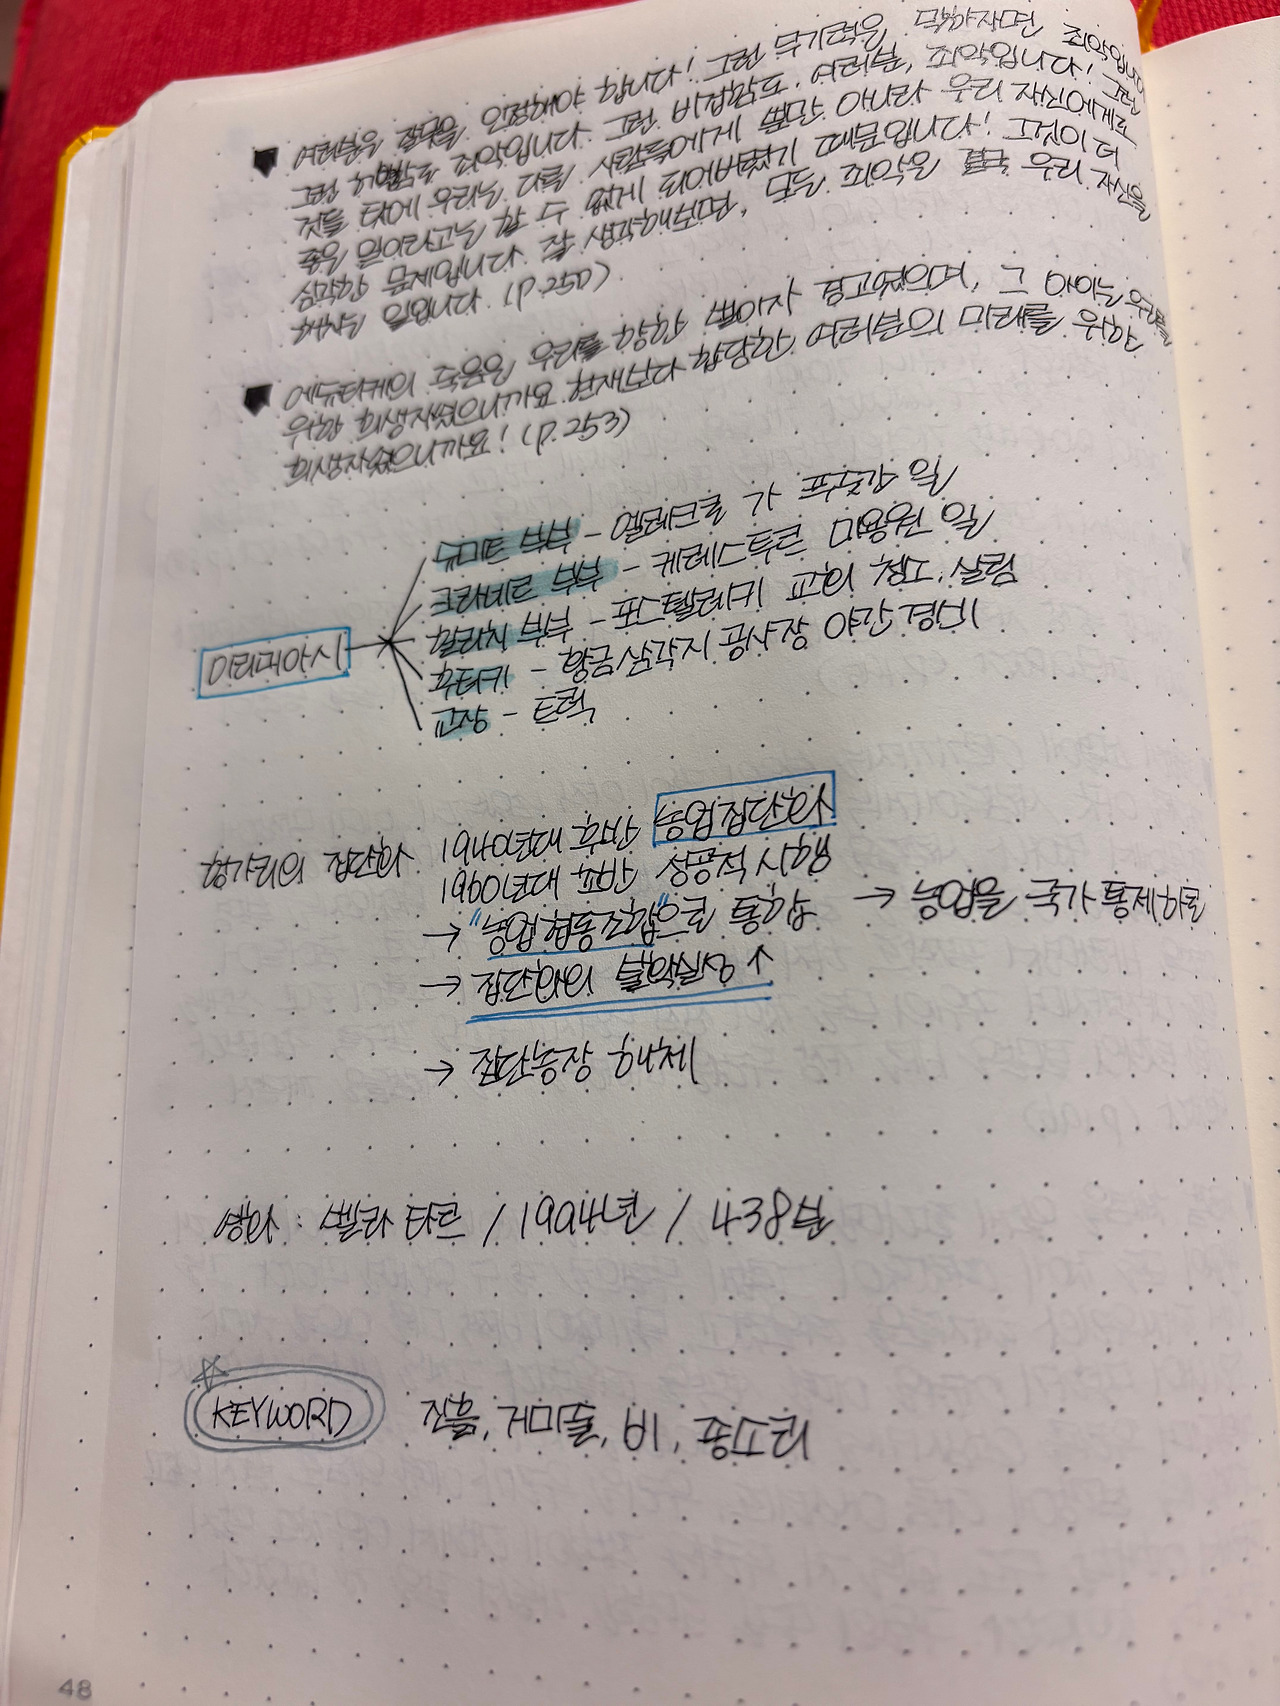 여러분은 잘못을 인정해야 합니다! 그런 무기력은, 말하자면 죄악입니다
그런 비겁함도 죄악입니다. 그런 비접함도, 여러분, 죄악입니다! 그런
것들 탓에 우리는 다른 사람들에게 뿐만 아니라 우리 자신에게도
좋은 일이라고는 할 수 없게 되어버렸기 때문입니다! 그것이 더
심각한 문제입니다. 잘 생각해보면, 모든 죄악은 결국 우리 자신을
해치는 일입니다. (p.250)
에슈티케의 죽음은 우리를 향한 벌이자 경고였으며, 그 아이는 우리를
위한 희생자였으니까요. 현재보다 합당한 여러분의 미래를 위한
희생자였으니까요! (p.253)
이리미아시
슈미트 부부 - 엘레크률 가 푸줏간 일
크라네르 부부 - 케레스투르 미용원 일
할리치 부부 - 포스텔레키 교회 청소, 살림
후터키 - 황금삼각지 공사장 야간 경비
교장 - 트럭
헝가리의 집단화 1940년대 후반 농업집단화
1960년대 초반 성공적 시행
→ "농업협동조합"으로 통합 → 농업을 국가 통제하로
→ 집단화의 불확실성 ↑
→ 집단농장 해체
영화 : 벨라 타르 / 1994년 / 438분
KEYWORD 진흙, 거미줄, 비, 종소리
48